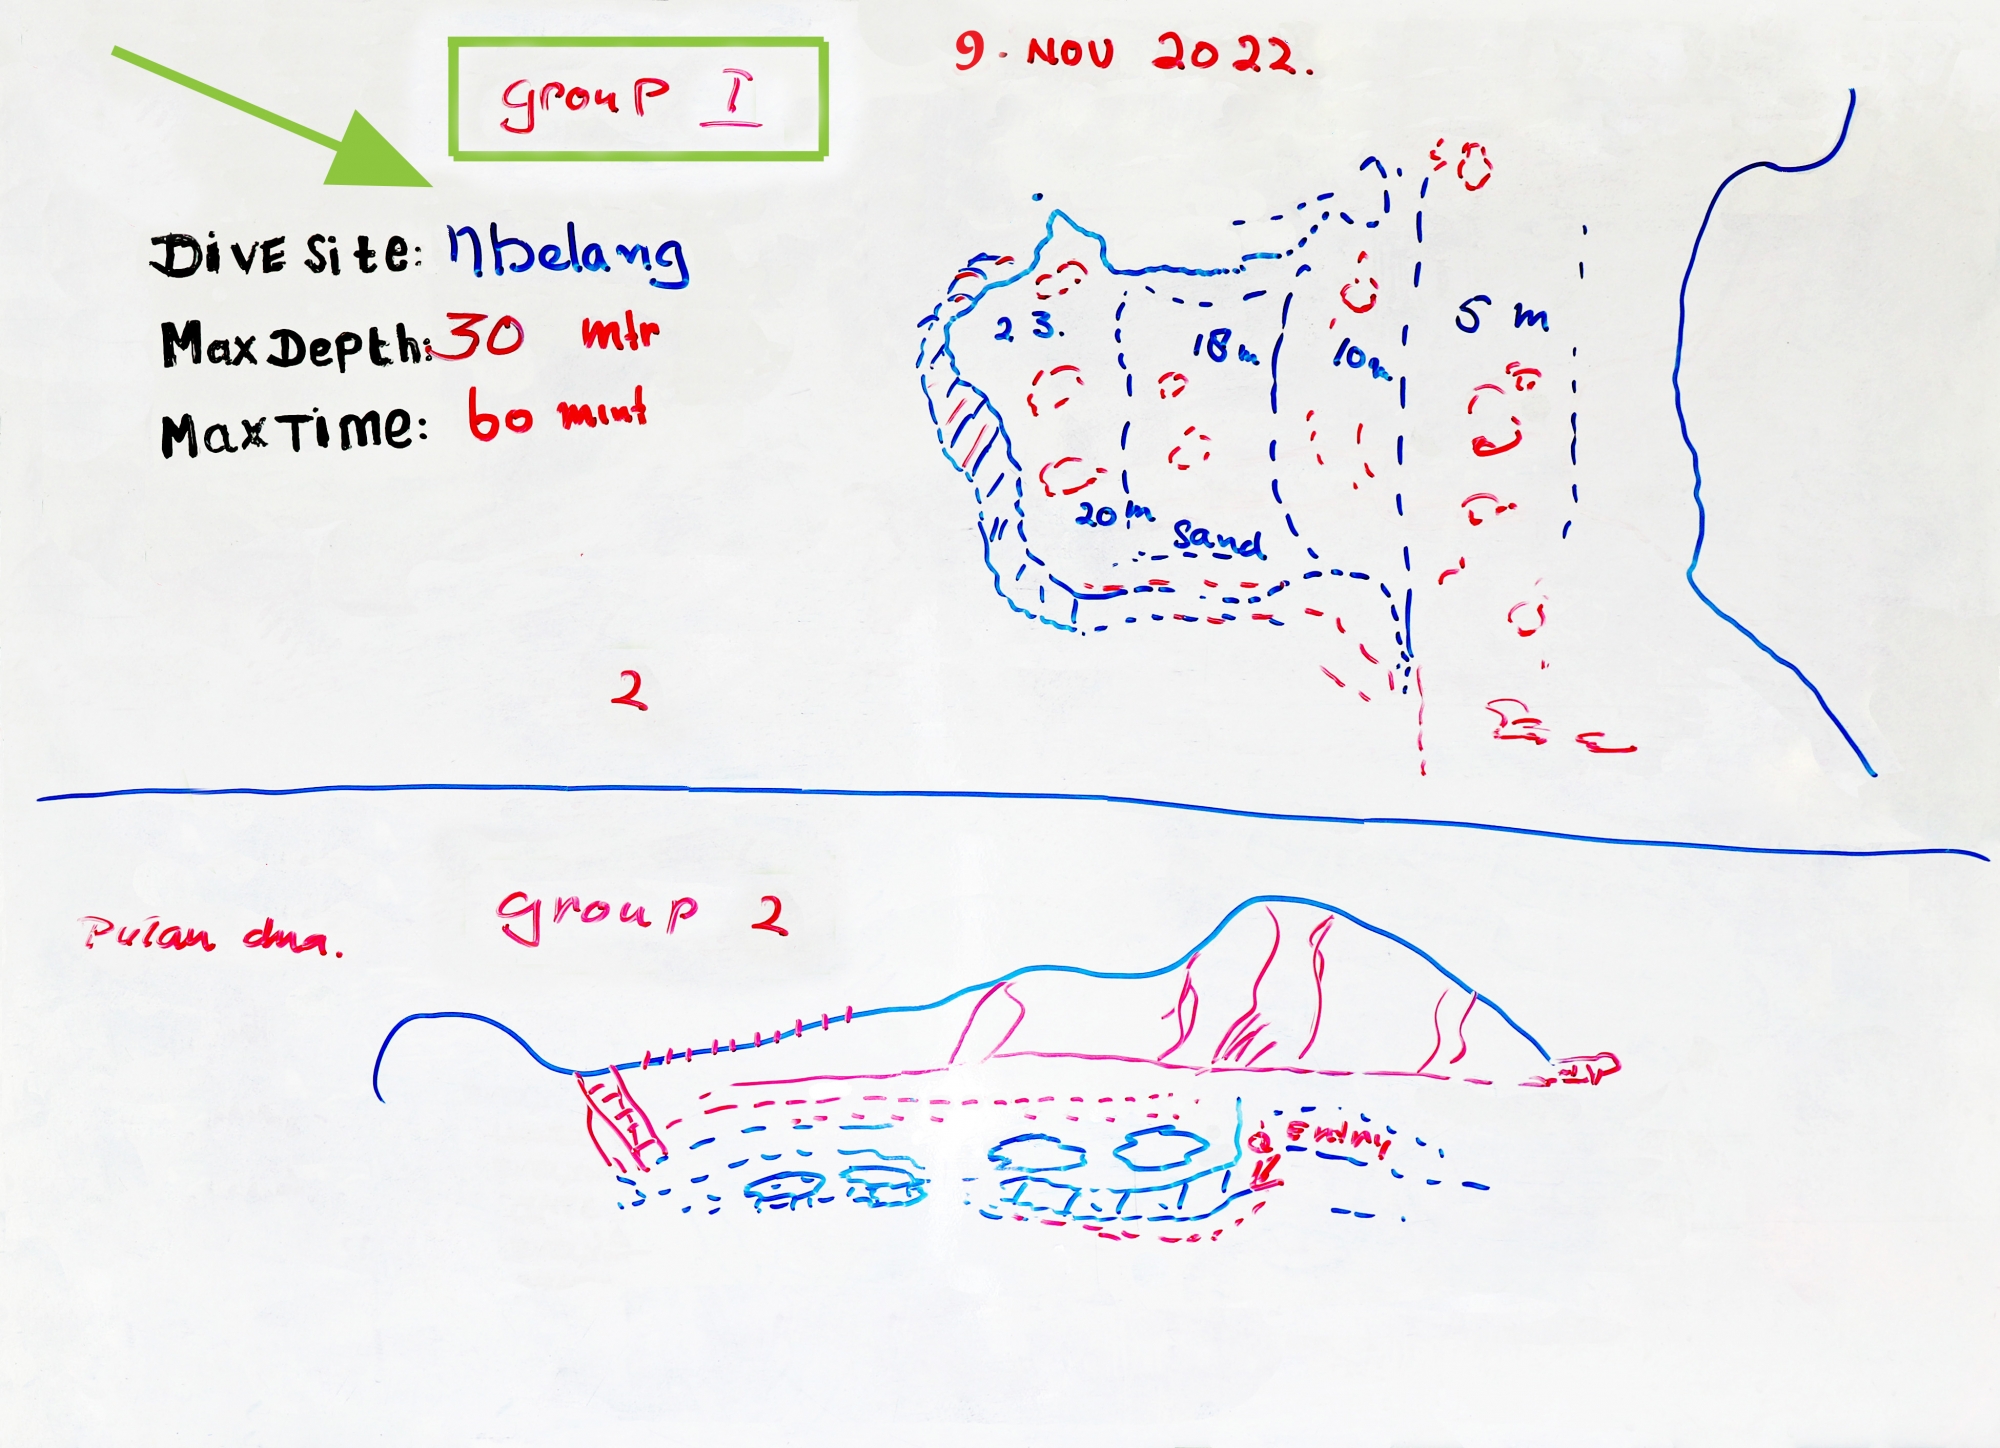 9. NOV 2022.
group I
DIVE Site: Nbelang
Max Depth: 30 mtr
Max TIME: 60 mint
23.
18m
10m
5 m
20m
Sand
2
group 2
Pulau dua.
Entry